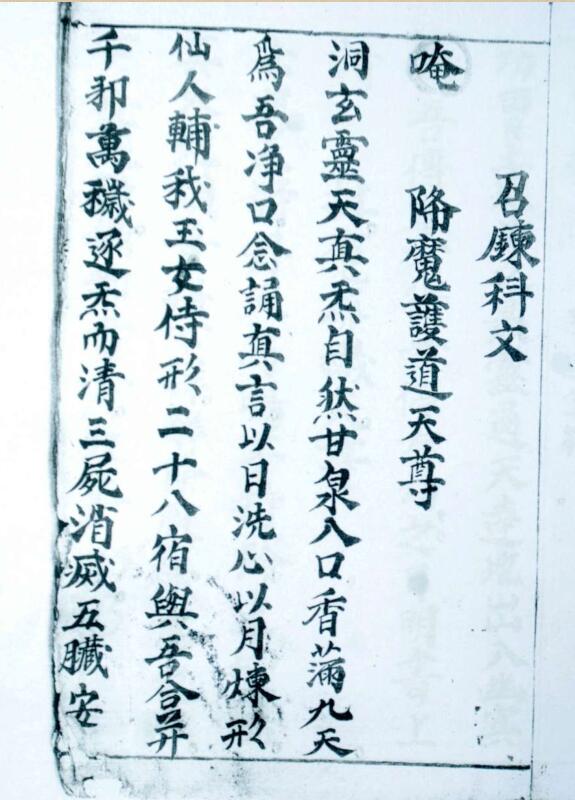 召鍊科文
唵 降魔護道天尊
洞玄靈天真炁自然甘泉入口香滿九天
為吾净口念誦真言以日洗心以月煉形
仙人輔我玉女侍形二十八宿與吾合并
千邪萬穢逐炁而清三屍消滅五臟安